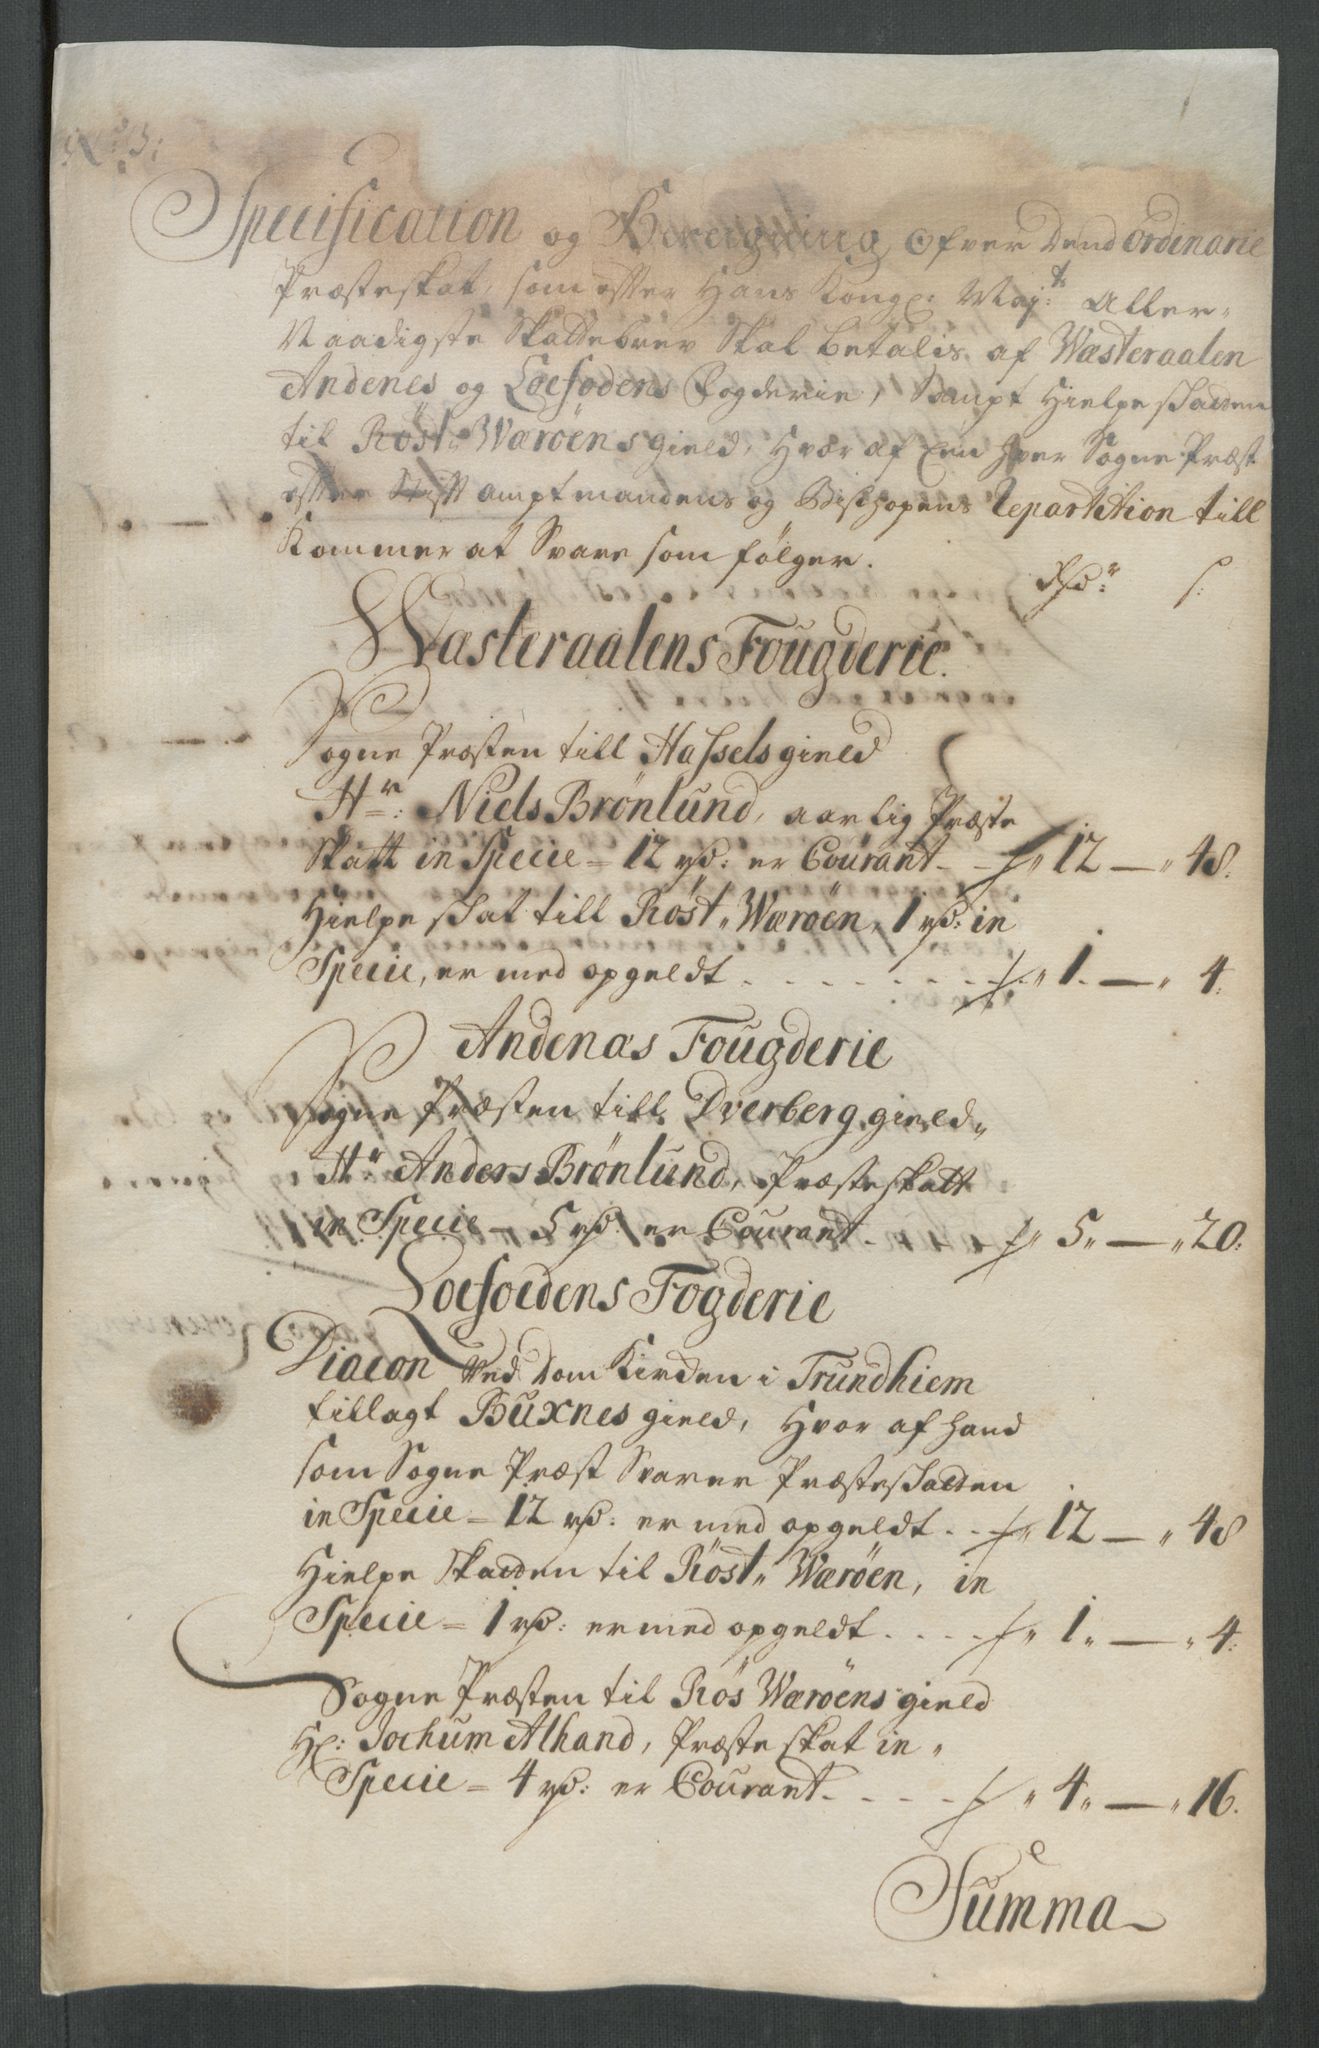 No 3:
Specification og Beregning Ofver Dend Ordinarie
Præsteskat, som efter Hans Kongl: Maj:ts Aller-
Naadigste Skattebrev Skal betalis af Wæsteraalen
Andenes og Loefodens Fogderie, Sampt Hielpe skatten
til Röst Wæröens gield, Hvor af Een hver Sogne Præst
efter Stift amptmandens og Bischopens Repartition till
Kommer at Svare som fölger.
Rd:r s:
Wæsteraalens Fougderie.
Sogne Præsten till Hassels gield
Hr: Niels Brönlund, aarlig Præste
Skatt in Specie = 12 rd: er Courant - 12 — 48.
Hielpe skat till Röst Wæröen, 1 rd: in
Specie, er med opgeldt . . . . 1. — 4.
Andenæs Fougderie
Sogne Præsten till Dverberg gield
Hr Anders Brönlund, Præsteskatt
in Specie — 5 rd: er Courant . 5 — 20:
Loefoedens Fogderie
Diacon Ved Dom Kirken i Trundhiem
tillagt Buxnes gield, Hvor af hand
som Sogne Præst Svarer Præsteskatten
in Specie = 12 rd: er med opgeldt . . 12 — 48
Hielpe Skatten til Röst Wæröen, in
Specie = 1 rd: er med opgeldt . . . . 1 — 4:
Sogne Præsten til Rös Wæröens gield
Hr: Jochum Alhand, Præste skat in
Specie = 4 rd: er Courant . . . . 4 — 16.
Summa